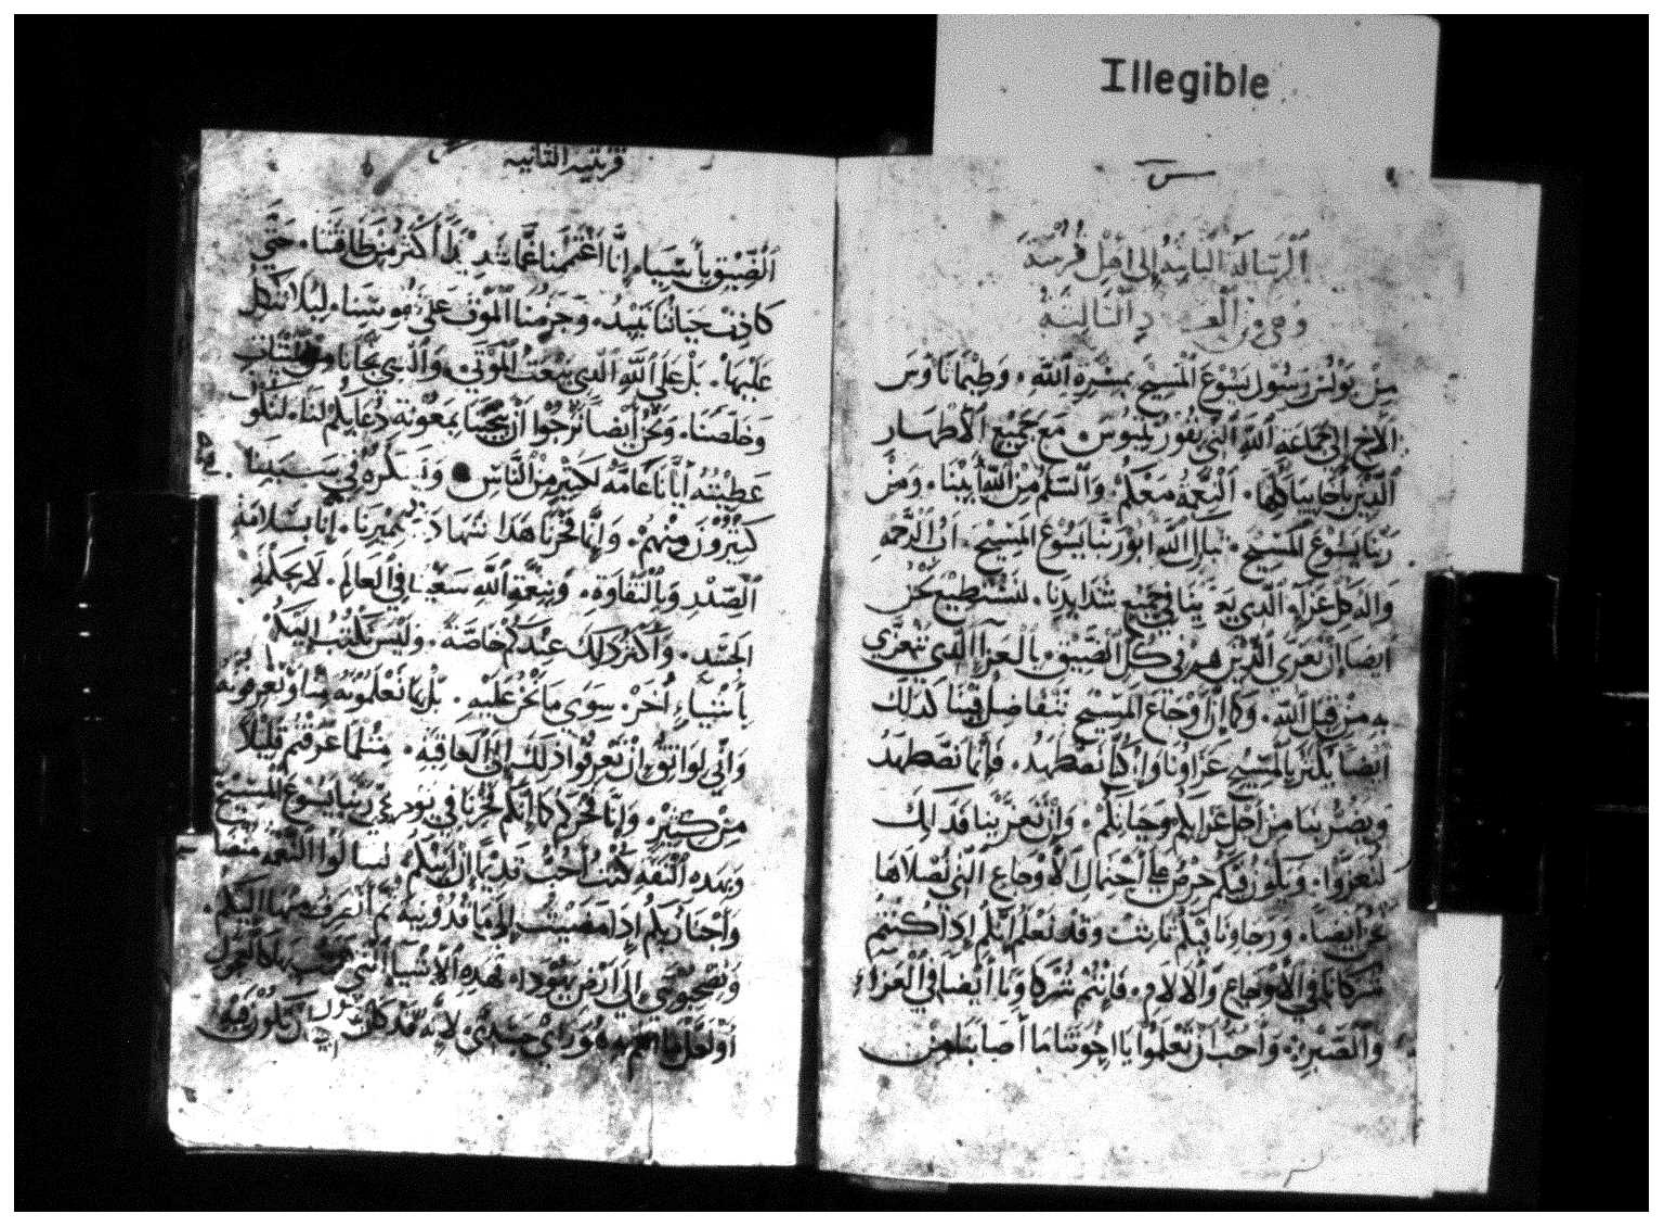 Illegible
الرسالة الثانية إلى أهل قرنتية
وهي من العدد الثالثة
من بولس رسول يسوع المسيح بمسرة الله. وطيماثاوس
الأخ إلى جماعة الله التي بقورنثيوس. مع جميع الأطهار
الذين بأخاييا كلها. النعمة معكم. والسلم من الله أبينا. ومن
ربنا يسوع المسيح. تبارك الله ابو ربنا يسوع المسيح. اب الرحمة
واله كل عزاء. الذي يعزينا في جميع شدايدنا. لنستطيع نحن
أيضا إن نعزي الذين هم في كل الضيق. بالعزاء الذي نتعزى
به من قبل الله. وكما إن أوجاع المسيح تتفاضل فينا كذلك
أيضا يكثر بالمسيح عزاونا وإن كنا نضطهد. فإنما نضطهد
من أجل عزايكم وحياتكم. وإن تعزينا فذلك
لتتعزوا. ويكون فيكم حرص على أحتمال الأوجاع التي نصلاها
نحن أيضا. ورجاونا فيكم ثابت وقد نعلم انكم إذا كنتم
شركانا في الأوجاع والألام. فإنتم شركاونا أيضا في العزاء
والصبر. وأحب أن تعلموا يا اخوتنا ما أصابنا من
قرنتيه الثانيه
الضيق بأسيا. إنا اغتممنا غما شديدا أكثر من طاقتنا. حتى
كادت حياتنا تبيد. وجزمنا الموت على نفوسنا. ليلا نتكل
عليها. بل على الله الذي يبعث الموتى. والذي نجانا من
وخلصنا. ونحن أيضا نرجوا أن ينجينا بمعونة دعايكم لنا. لتكون
عطيته أيانا عامة لكثير من الناس. ونشكره في سببنا
كثيرون منهم. وإنما فخرنا هذا شهادة ضميرنا. إنا بسلامة
الصدر وبالنقاوة. وبنعمة الله سعينا في العالم. لا بحكمة
الجسد. وأكثر ذلك عندكم خاصة. وليس نكتب إليكم
بأشياء أخر. سوى ما نحن عليه. بل بما تعلمونه منا وتعرفونه
واني لواثق إن تعرفوا ذلك إلى العاقبة. مثلما عرفتم قليلا
من كثير. وإنا فخركم كما إنكم فخرنا في يوم ربنا يسوع المسيح
وبهذه الثقة كنت أحب قديما إن آتيكم. لتنالوا النعمة
وأجتاز بكم إذا مضيت إلى ماقدونية ثم أنصرف منها اليكم.
وتصحبوني إلى أرض يهودا. فهذه الأشيا التي بها
أو لعل ما هو رأي جسدي لأنه قد كان يكون فيه